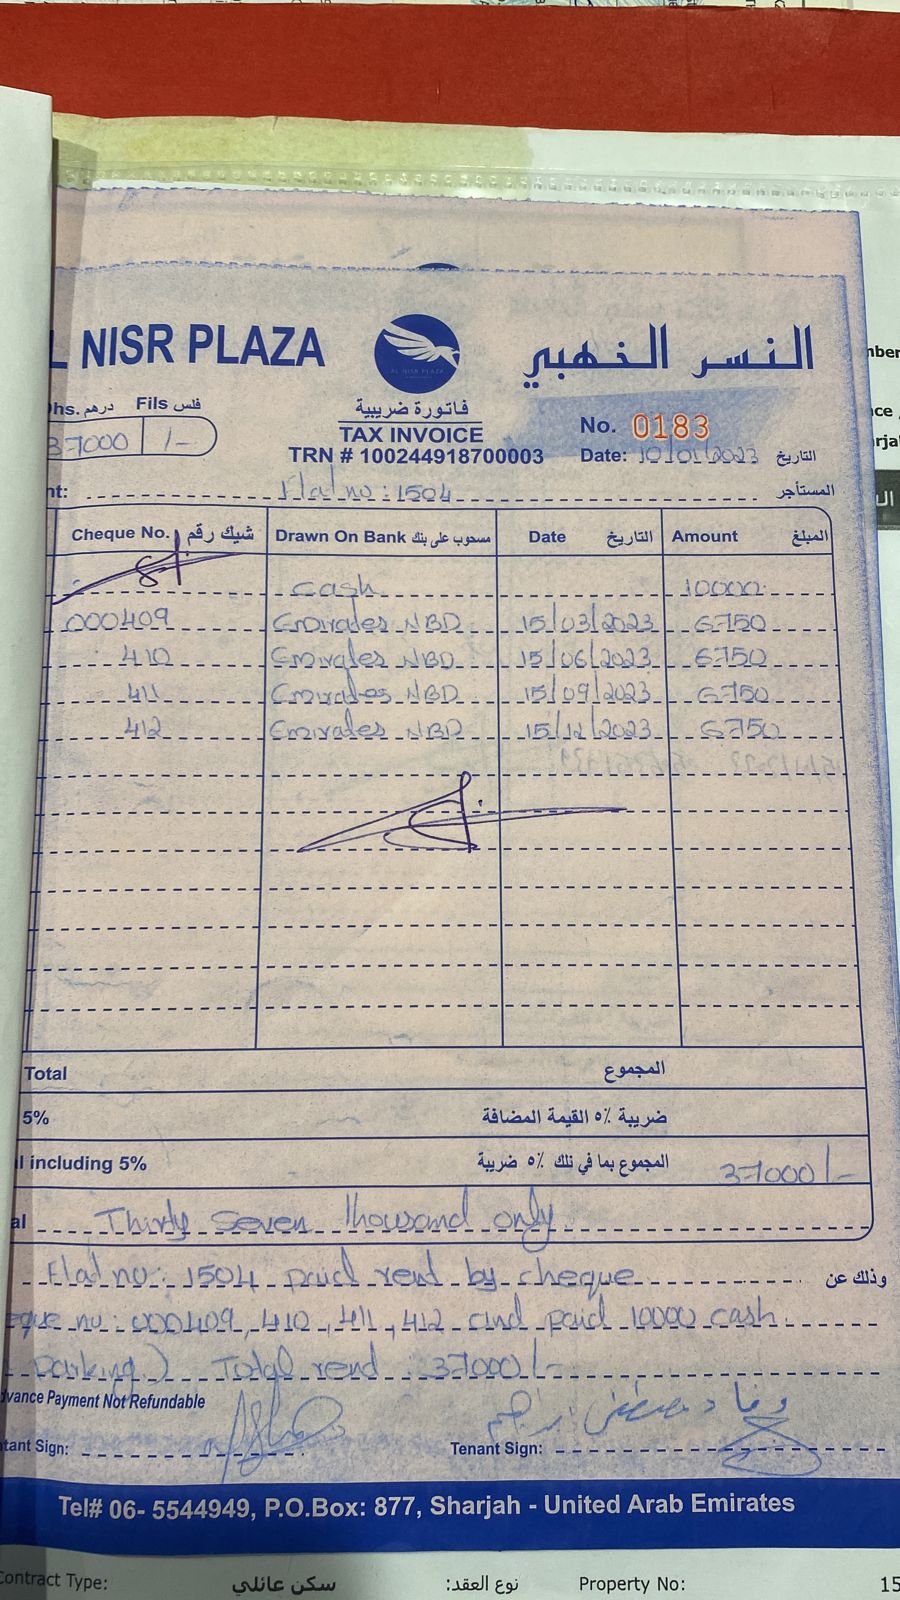 L NISR PLAZA
النسر الخهبي
AL NISR PLAZA
Dhs. درهم Fils فلس
37000 /-
فاتورة ضريبية
TAX INVOICE
TRN # 100244918700003
No. 0183
Date: 10/01/2023 التاريخ
nt: Flat no : 1504 المستأجر
Cheque No. شيك رقم Drawn On Bank مسحوب على بنك Date التاريخ Amount المبلغ
cash 10000
000409 Emirates NBD 15/03/2023 6750
410 Emirates NBD 15/06/2023 6750
411 Emirates NBD 15/09/2023 6750
412 Emirates NBD 15/12/2023 6750
Total المجموع
5% ضريبة ٥٪ القيمة المضافة
l including 5% المجموع بما في تلك ٥٪ ضريبة 37000/-
al Thirty Seven Thousand only
Flat no: 1504 paid rend by cheque وذلك عن
eque no: 000409, 410, 411, 412 and paid 10000 cash
Parking) Total rend 37000/-
dvance Payment Not Refundable
وفاء مصطفى ابراهيم
tant Sign: Tenant Sign:
Tel# 06- 5544949, P.O.Box: 877, Sharjah - United Arab Emirates
Contract Type: سكن عائلي نوع العقد: Property No: 15